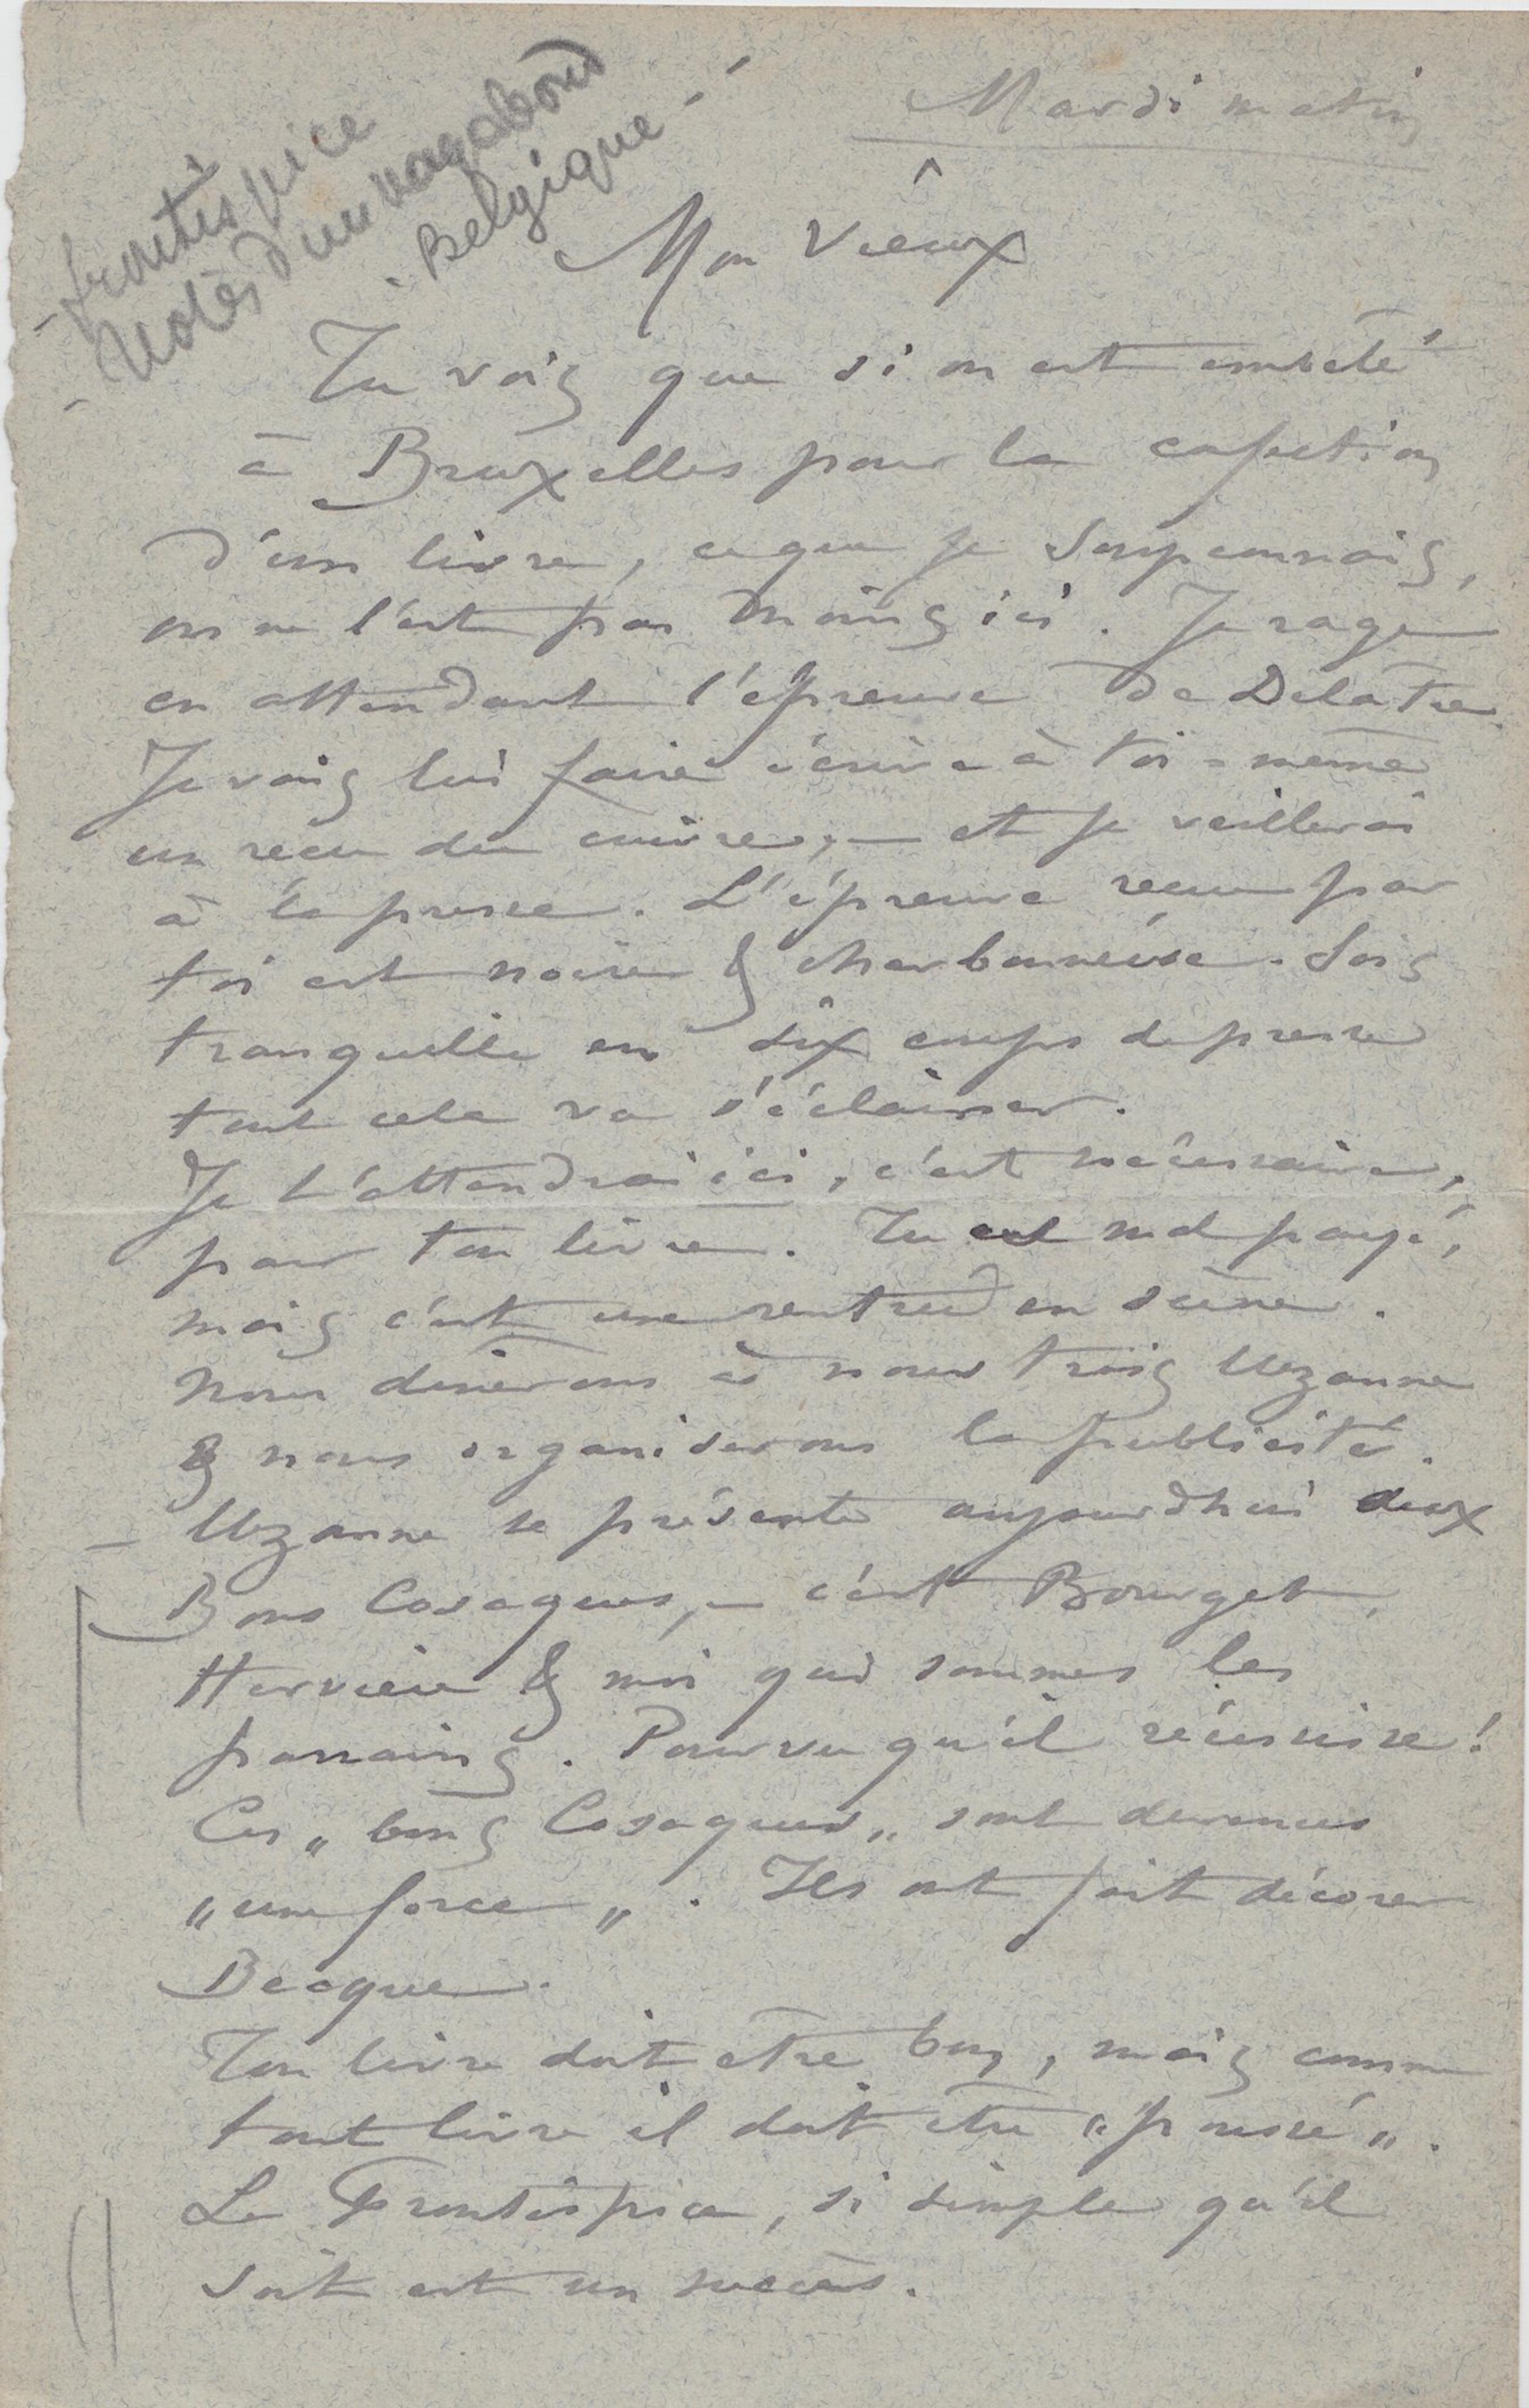 - frontispice
- Notes d'un vagabond
- Belgique
Mardi matin
Mon Vieux
Tu vois que si on est embêté
à Bruxelles pour la confection
d'un livre, ce que je soupçonnais,
on ne l'est pas moins ici. Je rage
en attendant l'épreuve de Delâtre.
Je vais lui faire écrire à toi-même
un reçu du cuivre, — et je veillerai
à la presse. L'épreuve reçue par
toi est noire & charbonneuse. Sois
tranquille en dix coups de presse
tout cela va s'éclairer.
Je t'attendrai ici, c'est nécessaire,
pour ton livre. Tu es mal payé,
mais c'est une rentrée en scène.
Nous dinerons à nous trois Uzanne
& nous organiserons la publicité.
— Uzanne se présente aujourd'hui aux
Bons Cosaques, — c'est Bourget,
Hervieu & moi qui sommes les
parrains. Pourvu qu'il réussisse!
Ces „bons Cosaques„ sont devenus
„une force„. Ils ont fait décorer
Becque.
Ton livre doit être bon, mais comme
tout livre il doit être „poussé„.
Le Frontispice, si simple qu'il
soit est un succès.